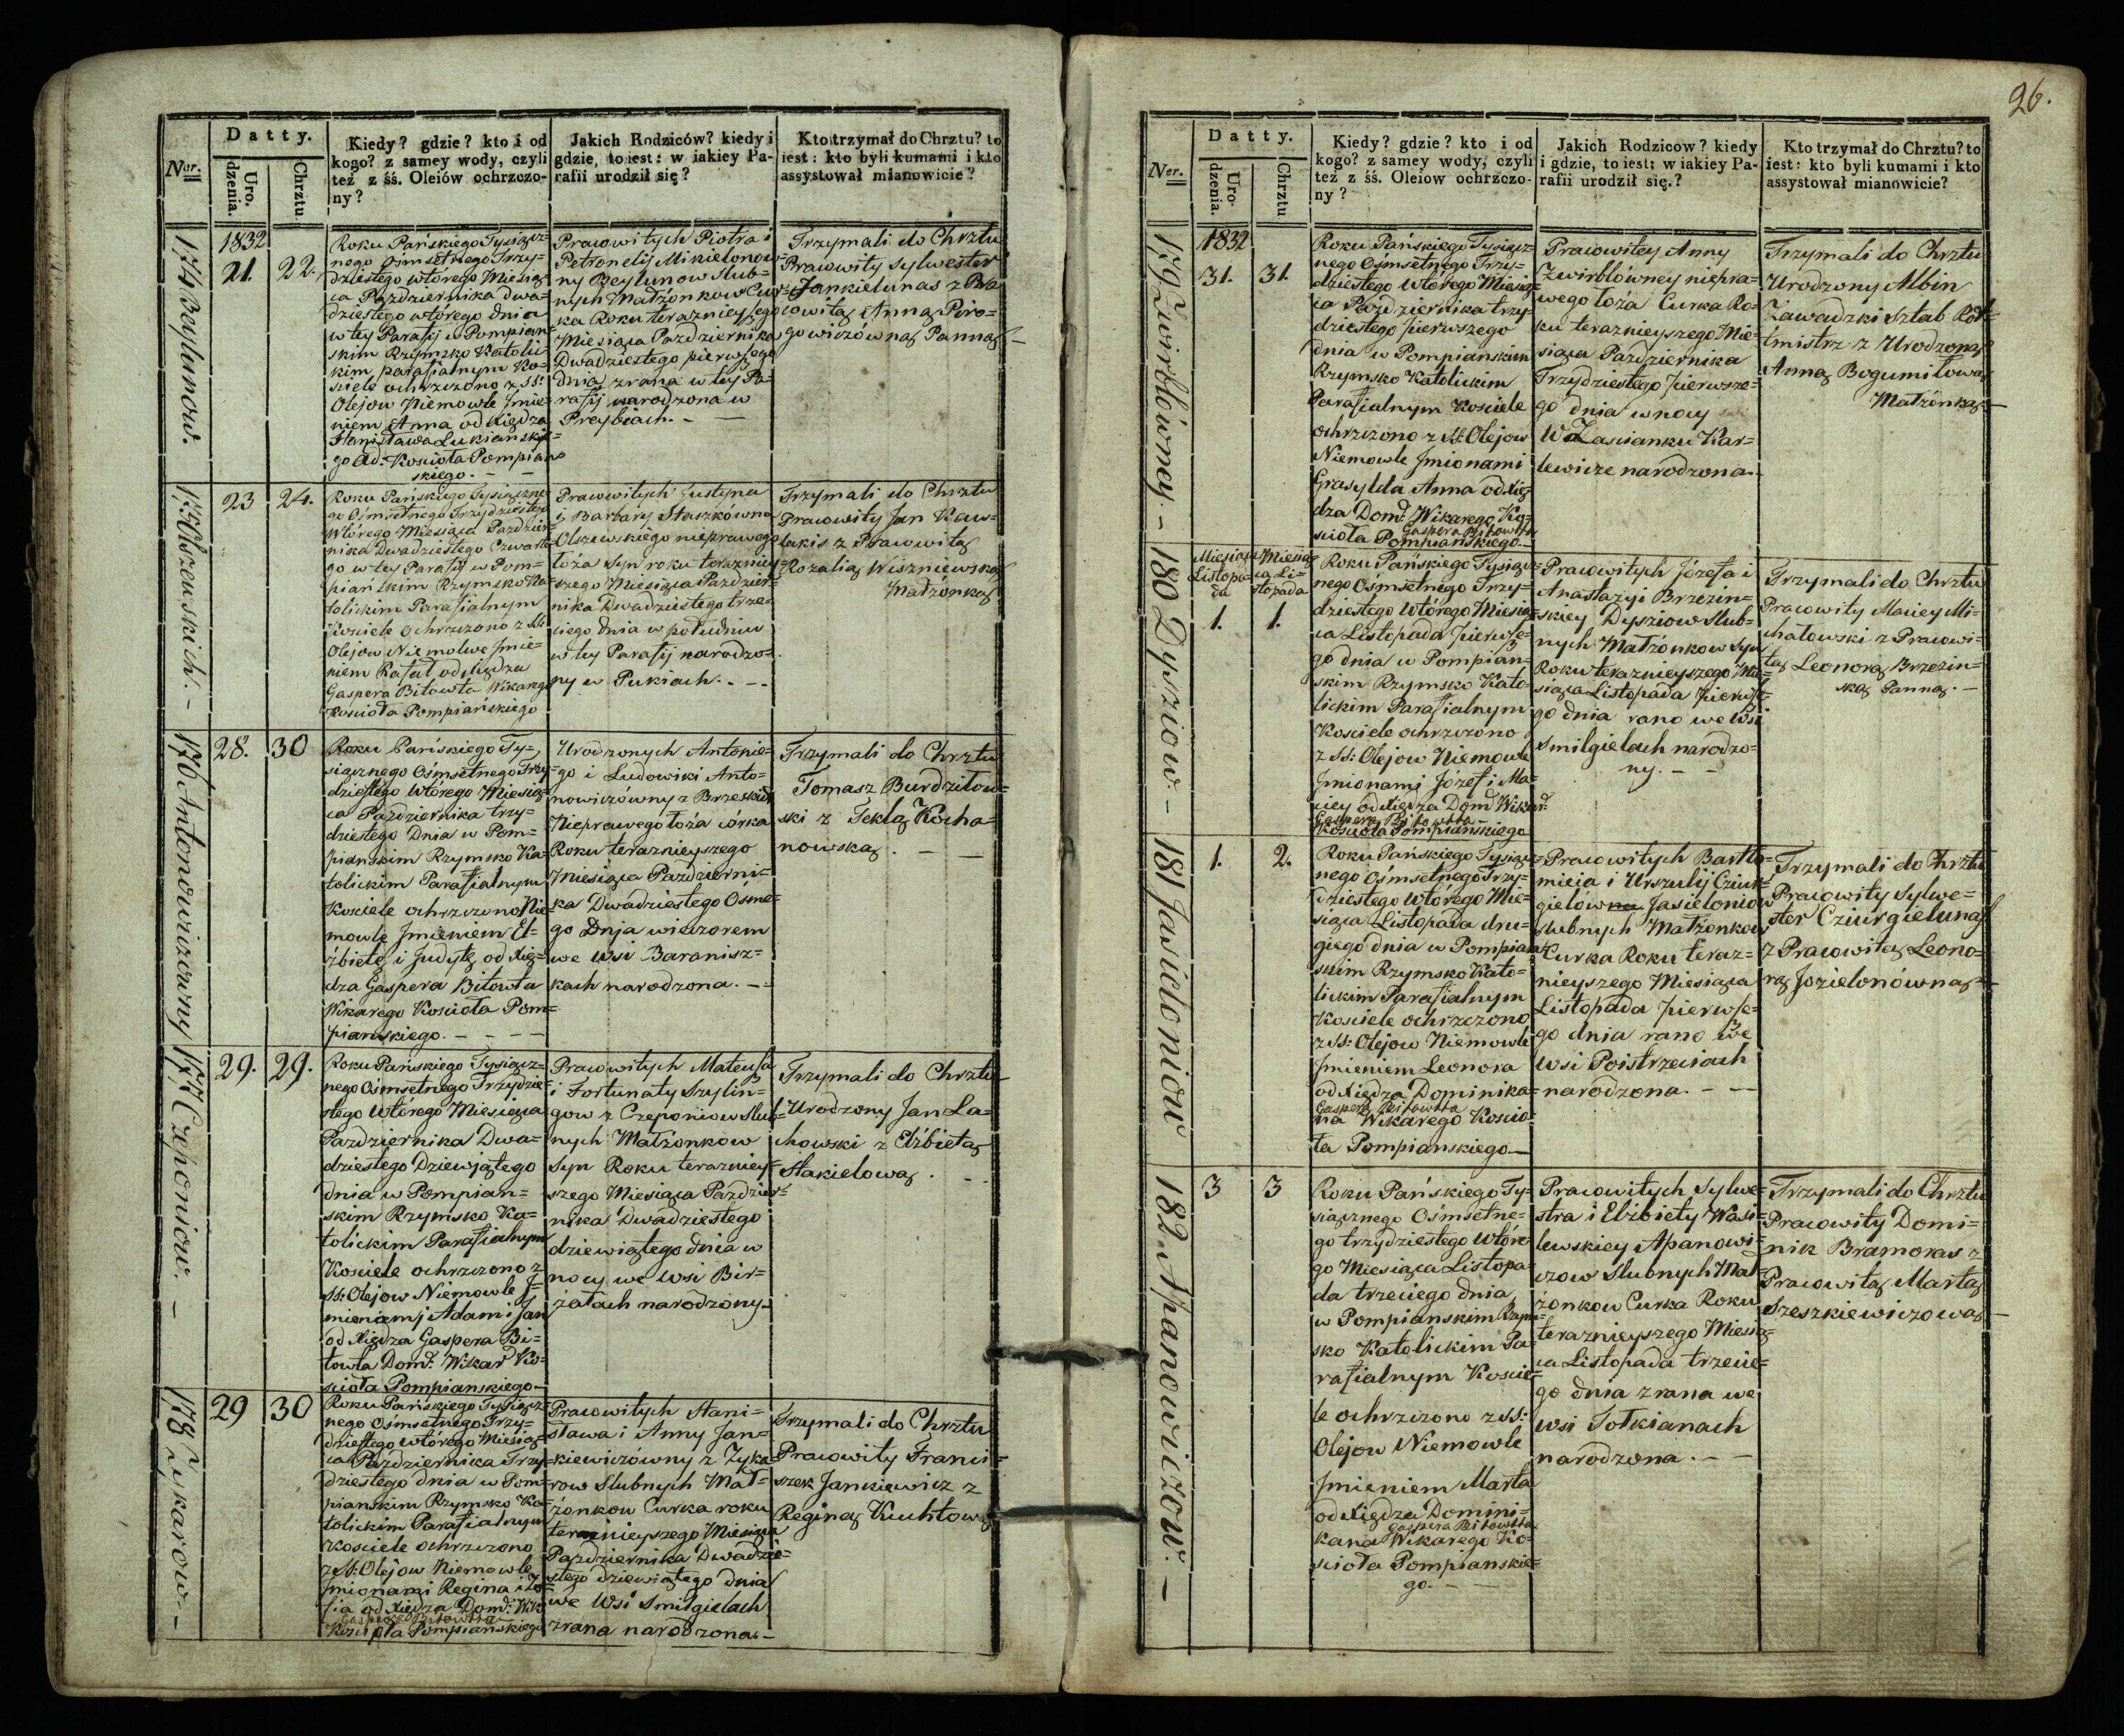 Datty.
Ner.
Uro. dzenia.
Chrztu
Kiedy? gdzie? kto i od
kogo? z samey wody, czyli
też z śś. Oleiów ochrzczo-
ny?
Jakich Rodziców? kiedy i
gdzie, to iest: w iakiey Pa-
rafii urodził się?
Kto trzymał do Chrztu? to
iest: kto byli kumami i kto
assystował mianowicie?
174 Beylunow.
1832
21.
22.
Roku Pańskiego Tysiącz-
nego Ośmsetnego Trzy-
dziestego wtórego Miesią-
ca Pazdziernika dwa-
dziestego wtórego dnia
w tey Parafij w Pompian-
skim Rzymsko Katolic-
kim parafialnym Ko-
sciele ochrzczono z SS:
Olejow Niemowle Jmie-
niem Anna od Xiędza
Stanisława Lukianskie-
go Ad: Kościoła Pompian-
skiego. -
Pracowitych Piotra i
Petronelij Mikielonow-
ny Beylunow Slub-
nych Małżonkow Cur-
ka Roku teraznieyszego
Miesiąca Pazdziernika
Dwadziestego pierwszego
dnia zrana w tey Pa-
rafij narodzona w
Preybiach. -
Trzymali do Chrztu
Pracowity Sylwester
Jankielunas z Pra-
cowitą Anną Piro-
gowiczówną Panną -
175 Olszewskich. -
23
24.
Roku Pańskiego Tysiączne-
go Ośmsetnego Trzydziestego
Wtórego Miesiąca Pazdzier-
nika Dwadziestego Czwarte-
go w tey Parafij w Pom-
piańskim Rzymsko Ka-
tolickim Parafialnym
Kosciele Ochrzczono z SS:
Olejow Niemolwe Jmie-
niem Rafał od Xiędza
Gaspera Bitowta Wikarego
Kościoła Pompiańskiego
Pracowitych Justyna
i Barbary Staszkówna
Olszewskiego nieprawego
łoża Syn roku terazniey-
szego Miesiąca Pazdzier-
nika Dwadziestego trze-
ciego dnia w południu
w tey Parafij narodzo-
ny w Pukiach. - -
Trzymali do Chrztu
Pracowity Jan Kaw-
lakis z Pracowitą
Rozalią Wiszniewską
Małżonką
176 Antonowiczowny
28.
30
Roku Pańskiego Ty-
siącznego Ośmsetnego Trzy-
dziestego Wtórego Miesią-
ca Pazdziernika trzy-
dziestego Dnia w Pom-
pianskim Rzymsko Ka-
tolickim Parafialnym
Kosciele ochrzczono Nie-
mowle Jmieniem El-
żbietę i Judytę od Xię-
dza Gaspera Bitowta
Wikarego Kościoła Pom-
pianskiego. - - -
Urodzonych Antonie-
go i Ludowiki Anto-
nowiczówny z Brzeskich
Nieprawego łoża córka
Roku teraznieyszego
Miesiąca Pazdzierni-
ka Dwadziestego Ósme-
go Dnia wieczorem
we Wsi Baranisz-
kach narodzona. -
Trzymali do Chrztu
Tomasz Burdziłow-
ski z Teklą Kocha-
nowską. - -
177 Czeponiow. -
29.
29.
Roku Pańskiego Tysiącz-
nego Ośmsetnego Trzydzie-
stego Wtórego Miesiąca
Pazdziernika Dwa-
dziestego Dziewiątego
dnia w Pompian-
skim Rzymsko Ka-
tolickim Parafialnym
Kosciele ochrzczono z
SS: Olejow Niemowle J-
mieniemj Adam i Jan
od Xiędza Gaspera Bi-
towta Domk: Wikar Ko-
scioła Pompianskiego -
Pracowitych Mateusza
i Fortunaty Szylin-
gow z Czeponiow Slub-
nych Małżonkow
Syn Roku teraźniey-
szego Miesiąca Pazdzier-
nika Dwadziestego
dziewiątego dnia w
nocy we Wsi Bir-
żałach narodzony -
Trzymali do Chrztu
Urodzony Jan La-
chowski z Elżbietą
Stakielową. - -
178 Żykarow. -
29
30
Roku Pańskiego Tysiącz-
nego Ośmsetnego Trzy-
dziestego wtórego Miesią-
ca Pazdziernika Trzy-
dziestego dnia w Pom-
pianskim Rzymsko Ka-
tolickim Parafialnym
Kosciele ochrzczono
z SS: Olejow Niemowle
Jmionami Regina i Zo-
fia od Xiędza Domk: Wik
Gaspera Bitowtta
Kościoła Pompianskiego
Pracowitych Stani-
sława i Anny Jan-
kiewiczówny z Żyka-
row Slubnych Mał-
żonkow Curka roku
teraznieyszego Miesiąca
Pazdziernika Dwadzie-
stego dziewiątego dnia
we Wsi Smilgielach
zrana narodzona. -
Trzymali do Chrztu
Pracowity Franci-
szek Jankiewicz z
Reginą Kuchtową
26.
Datty.
Ner.
Uro- dzenia.
Chrztu
Kiedy? gdzie? kto i od
kogo? z samey wody, czyli
też z śś. Oleiow ochrzczo-
ny?
Jakich Rodzicow? kiedy
i gdzie, to iest: w iakiey Pa-
rafii urodził się.?
Kto trzymał do Chrztu? to
iest: kto byli kumami i kto
assystował mianowicie?
179 Zwirblówney. -
1832
31.
31.
Roku Pańskiego Tysiącz-
nego Ośmsetnego Trzy-
dziestego Wtórego Miesią-
ca Pazdziernika trzy-
dziestego pierwszego
dnia w Pompianskim
Rzymsko Katolickim
Parafialnym Kosciele
ochrzczono z SS: Olejow
Niemowle Jmionami
Grasylda Anna od Xię-
dza Domk: Wikarego Ko-
Gaspera Bitowtta
scioła Pompiańskiego. -
Pracowitey Anny
Zwirblówney niepra-
wego łoża Curka Ro-
ku teraznieyszego Mie-
siąca Pazdziernika
Trzydziestego pierwsze-
go dnia w nocy
W Zascianku Kar-
lewicze narodzona. -
Trzymali do Chrztu
Urodzony Albin
Zawadzki Sztab Rot-
mistrz z Urodzoną
Anną Bogumiłową
Małżonką -
180 Dysziow. -
Miesiąca
Listopa-
da
1.
Miesią-
ca Li-
stopada
1.
Roku Pańskiego Tysiącz-
nego Ośmsetnego Trzy-
dziestego Wtórego Miesią-
ca Listopada pierwsze-
go dnia w Pompian-
skim Rzymsko Kato-
lickim Parafialnym
Kosciele ochrzczono
z SS: Olejow Niemowle
Jmionami Józef i Ma-
ciey od Xiędza Dom Wikar:
Gaspera Bitowtta -
Kościoła Pompianskiego
Pracowitych Józefa i
Anastazyi Brzezin-
skiey Dysziow Slub-
nych Małżonkow Syn
Roku teraznieyszego Mie-
siąca Listopada pierwsze-
go dnia rano we Wsi
Smilgielach narodzo-
ny. - -
Trzymali do Chrztu
Pracowity Maciey Mi-
chałowski z Pracowi-
tą Leonorą Brzezin-
ską Panną. -
181 Jasieloniow
1.
2.
Roku Pańskiego Tysiącz-
nego Ośmsetnego Trzy-
dziestego Wtórego Mie-
siąca Listopada dru-
giego dnia w Pompian-
skim Rzymsko Kato-
lickim Parafialnym
Kosciele ochrzczono
z SS: Olejow Niemowle
Jmieniem Leonora
od Xiędza Dominika-
Gaspera Bitowtta
na Wikarego Koscio-
ła Pompianskiego -
Pracowitych Bartło-
mieia i Urszulij Cziur-
gielówna Jasieloniow
Slubnych Małżonkow
Curka Roku teraz-
nieyszego Miesiąca
Listopada pierwsze-
go dnia rano we
Wsi Poistrzeciach
narodzona. - -
Trzymali do Chrztu
Pracowity Sylwe-
ster Cziurgielunas
z Pracowitą Leono-
rą Jozielonówną -
182 Apanowiczow. -
3
3
Roku Pańskiego Ty-
siącznego Ośmsetne-
go trzydziestego Wtóre-
go Miesiąca Listopa-
da trzeciego dnia
w Pompianskim Rzym-
sko Katolickim Pa-
rafialnym Koscie-
le ochrzczono z SS:
Olejow Niemowle
Jmieniem Marta
od Xiędza Domini-
Gaspera Bitowtta
kana Wikarego Ko-
scioła Pompianskie-
go. -
Pracowitych Sylwe-
stra i Elżbiety Wasi-
lewskiey Apanowi-
czow Slubnych Mał-
żonkow Curka Roku
teraznieyszego Miesią-
ca Listopada trzecie-
go dnia zrana we
wsi Tołkianach
narodzona. - -
Trzymali do Chrztu
Pracowity Domi-
nik Bramoras z
Pracowitą Martą
Szeszkiewiczową -